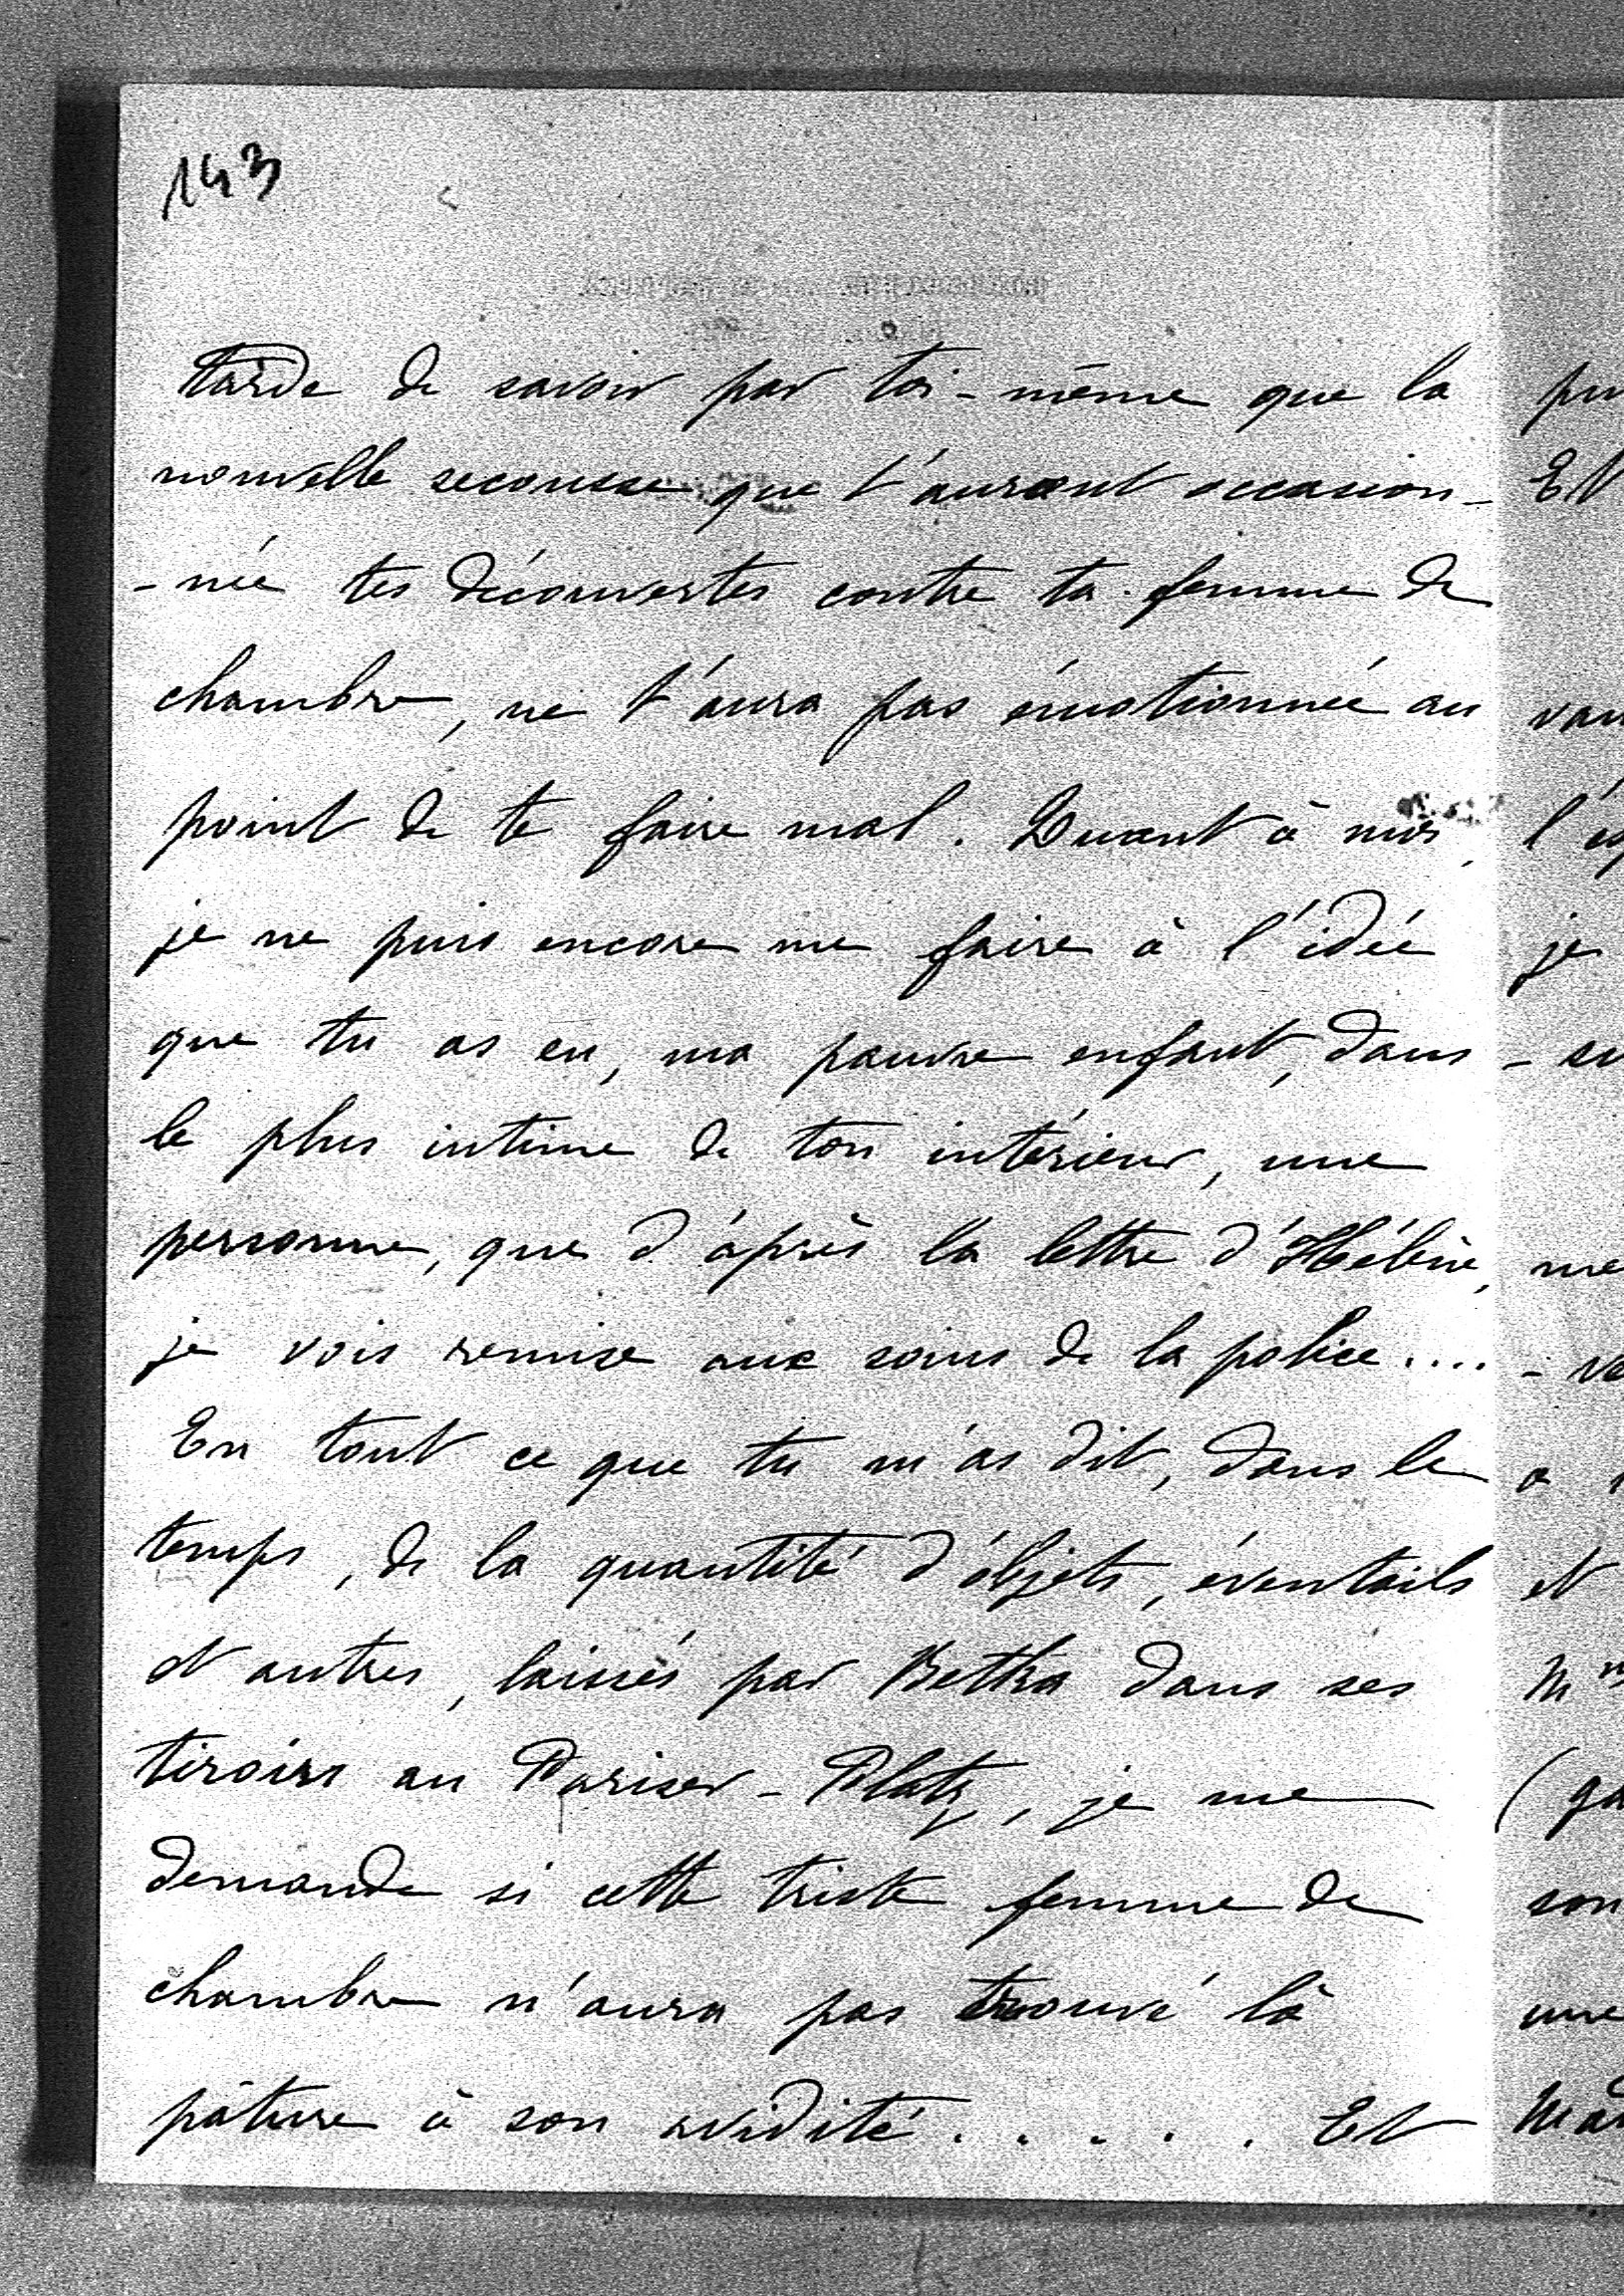 143
tarde de savoir par toi-même que la
nouvelle secousse que t'auront occasion-
-née tes découvertes contre ta femme de
chambre, ne t'aura pas émotionnée au
point de te faire mal. Quant à moi,
je ne puis encore me faire à l'idée
que tu as eu, ma pauvre enfant, dans
le plus intime de ton intérieur, une
personne, que d'après la lettre d'Hélène,
je vois remise aux soins de la police....
En tout ce que tu m'as dit, dans le
temps, de la quantité d'objets, éventails
et autres, laissés par Betka dans ses
tiroirs au Pariser-Platz, je me
demande si cette triste femme de
chambre n'aura pas trouvé là
pâture à son avidité . . . . . Et